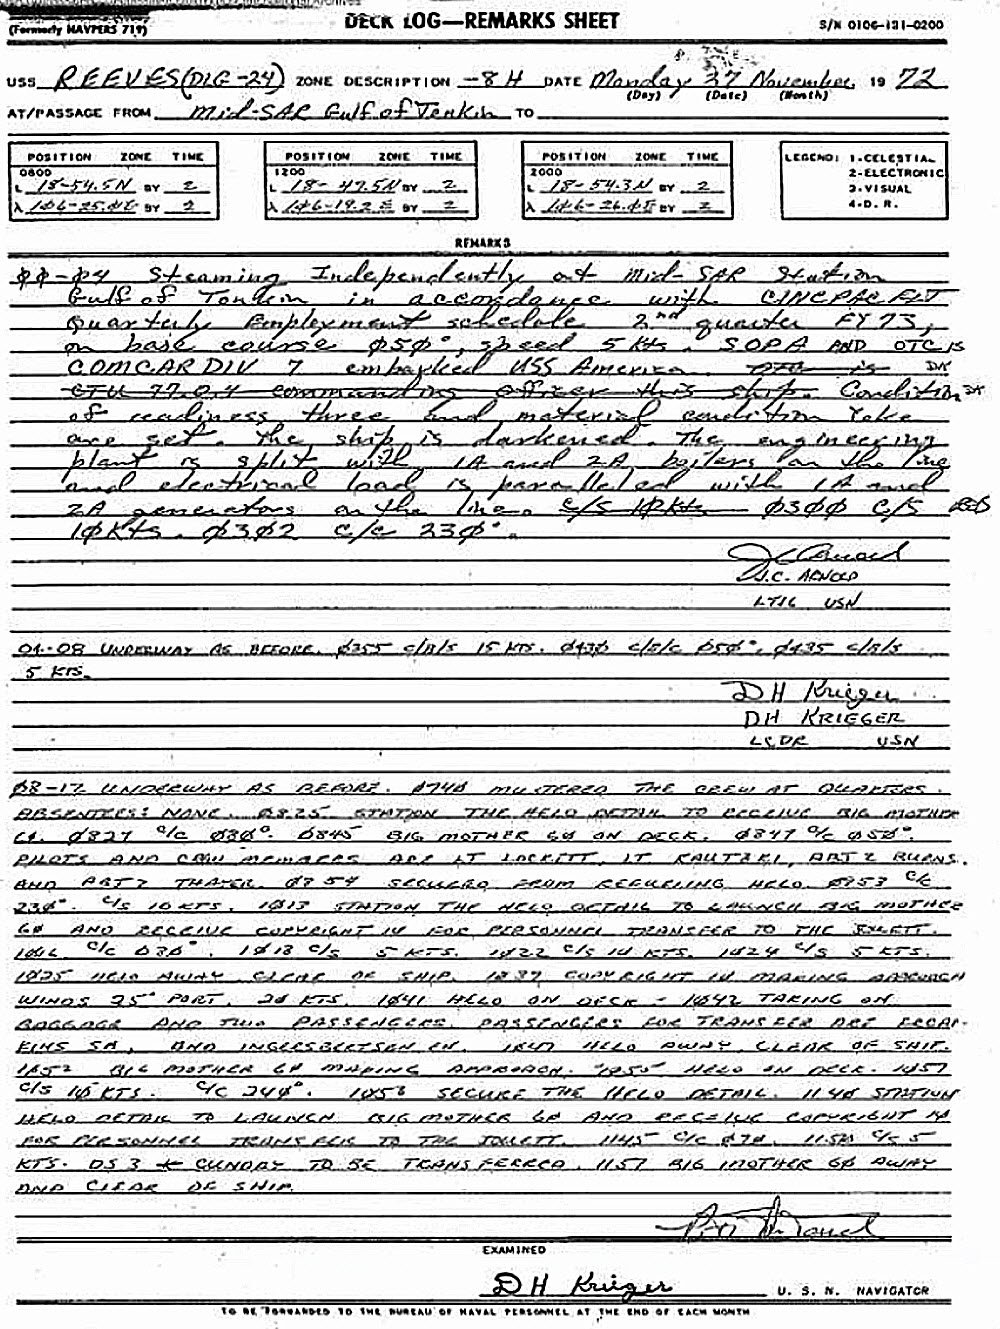 (Formerly NAVPERS 719)
DECK LOG—REMARKS SHEET
S/N 0106-131-0200
USS REEVES (DLG-24) ZONE DESCRIPTION -8H DATE Monday 27 November 19 72
(Day) (Date) (Month)
AT/PASSAGE FROM Mid-SAR Gulf of Tonkin TO
POSITION ZONE TIME
0800
L 18-54.5N BY 2
λ 1Ø6-25.ØE BY 2
POSITION ZONE TIME
1200
L 18-47.5N BY 2
λ 1Ø6-19.2E BY 2
POSITION ZONE TIME
2000
L 18-54.3N BY 2
λ 1Ø6-26.ØE BY 2
LEGEND: 1-CELESTIAL
2-ELECTRONIC
3-VISUAL
4-D. R.
REMARKS
ØØ-Ø4 Steaming Independently at Mid-SAR Station
Gulf of Tonkin in accordance with CINCPACFLT
Quarterly Employment schedule 2nd quarter FY 73,
on base course Ø5Ø°, speed 5 kts. SOPA AND OTC is
COMCARDIV 7 embarked USS America. OTC is DK
CTU 77.0.4 commanding officer this ship. Condition DK
of readiness three and material condition Yoke
are set. The ship is darkened. The engineering
plant is split with 1A and 2A boilers on the line
and electrical load is paralleled with 1A and
2A generators on the line. C/S 1Ø kts Ø3ØØ C/S
1Ø kts. Ø3Ø2 C/C 23Ø°.
J.C. ARNOLD
LTJG USN
04-08 UNDERWAY AS BEFORE. Ø355 C/B/S 15 KTS. Ø43Ø C/B/C Ø5Ø°. Ø435 C/B/S
5 KTS.
DH Krieger
DH KRIEGER
LCDR USN
Ø8-12 UNDERWAY AS BEFORE. Ø74Ø MUSTERED THE CREW AT QUARTERS.
ABSENTEES: NONE. Ø825 STATION THE HELO DETAIL TO RECEIVE BIG MOTHER
Ø827 C/C Ø3Ø°. Ø845 BIG MOTHER 6Ø ON DECK. Ø847 C/C Ø5Ø°.
PILOTS AND CREW MEMBERS ARE LT LOCKETT, LT KAUTZKI, BURNS,
AND THAYER. Ø854 SECURED FROM REFUELING HELO. Ø853 C/C
23Ø°. C/S 10 KTS. 1Ø13 STATION THE HELO DETAIL TO LAUNCH BIG MOTHER
6Ø AND RECEIVE COPYRIGHT 14 FOR PERSONNEL TRANSFER TO THE
1Ø16 C/C Ø3Ø°. 1Ø18 C/S 5 KTS. 1Ø22 C/S 1Ø KTS. 1Ø24 C/S 5 KTS.
1Ø25 HELO AWAY, CLEAR OF SHIP. 1Ø37 COPYRIGHT 14 MAKING APPROACH
WINDS 25° PORT, 2Ø KTS. 1Ø41 HELO ON DECK - 1Ø42 TAKING ON
BAGGAGE AND TWO PASSENGERS. PASSENGERS FOR TRANSFER ARE
SA, AND 1Ø47 HELO AWAY, CLEAR OF SHIP.
1Ø52 BIG MOTHER 6Ø MAKING APPROACH. 1Ø55 HELO ON DECK. 1Ø57
C/S 1Ø KTS. C/C 24Ø°. 1Ø58 SECURE THE HELO DETAIL. 114Ø STATION
HELO DETAIL TO LAUNCH BIG MOTHER 6Ø AND RECEIVE COPYRIGHT 14
FOR PERSONNEL TRANSFER TO THE JOUETT. 1145 C/C Ø7Ø. 115Ø C/S 5
KTS. DS3 CUNDAY TO BE TRANSFERRED. 1157 BIG MOTHER 6Ø AWAY
AND CLEAR OF SHIP.
EXAMINED
DH Krieger U. S. N. NAVIGATOR
TO BE FORWARDED TO THE BUREAU OF NAVAL PERSONNEL AT THE END OF EACH MONTH